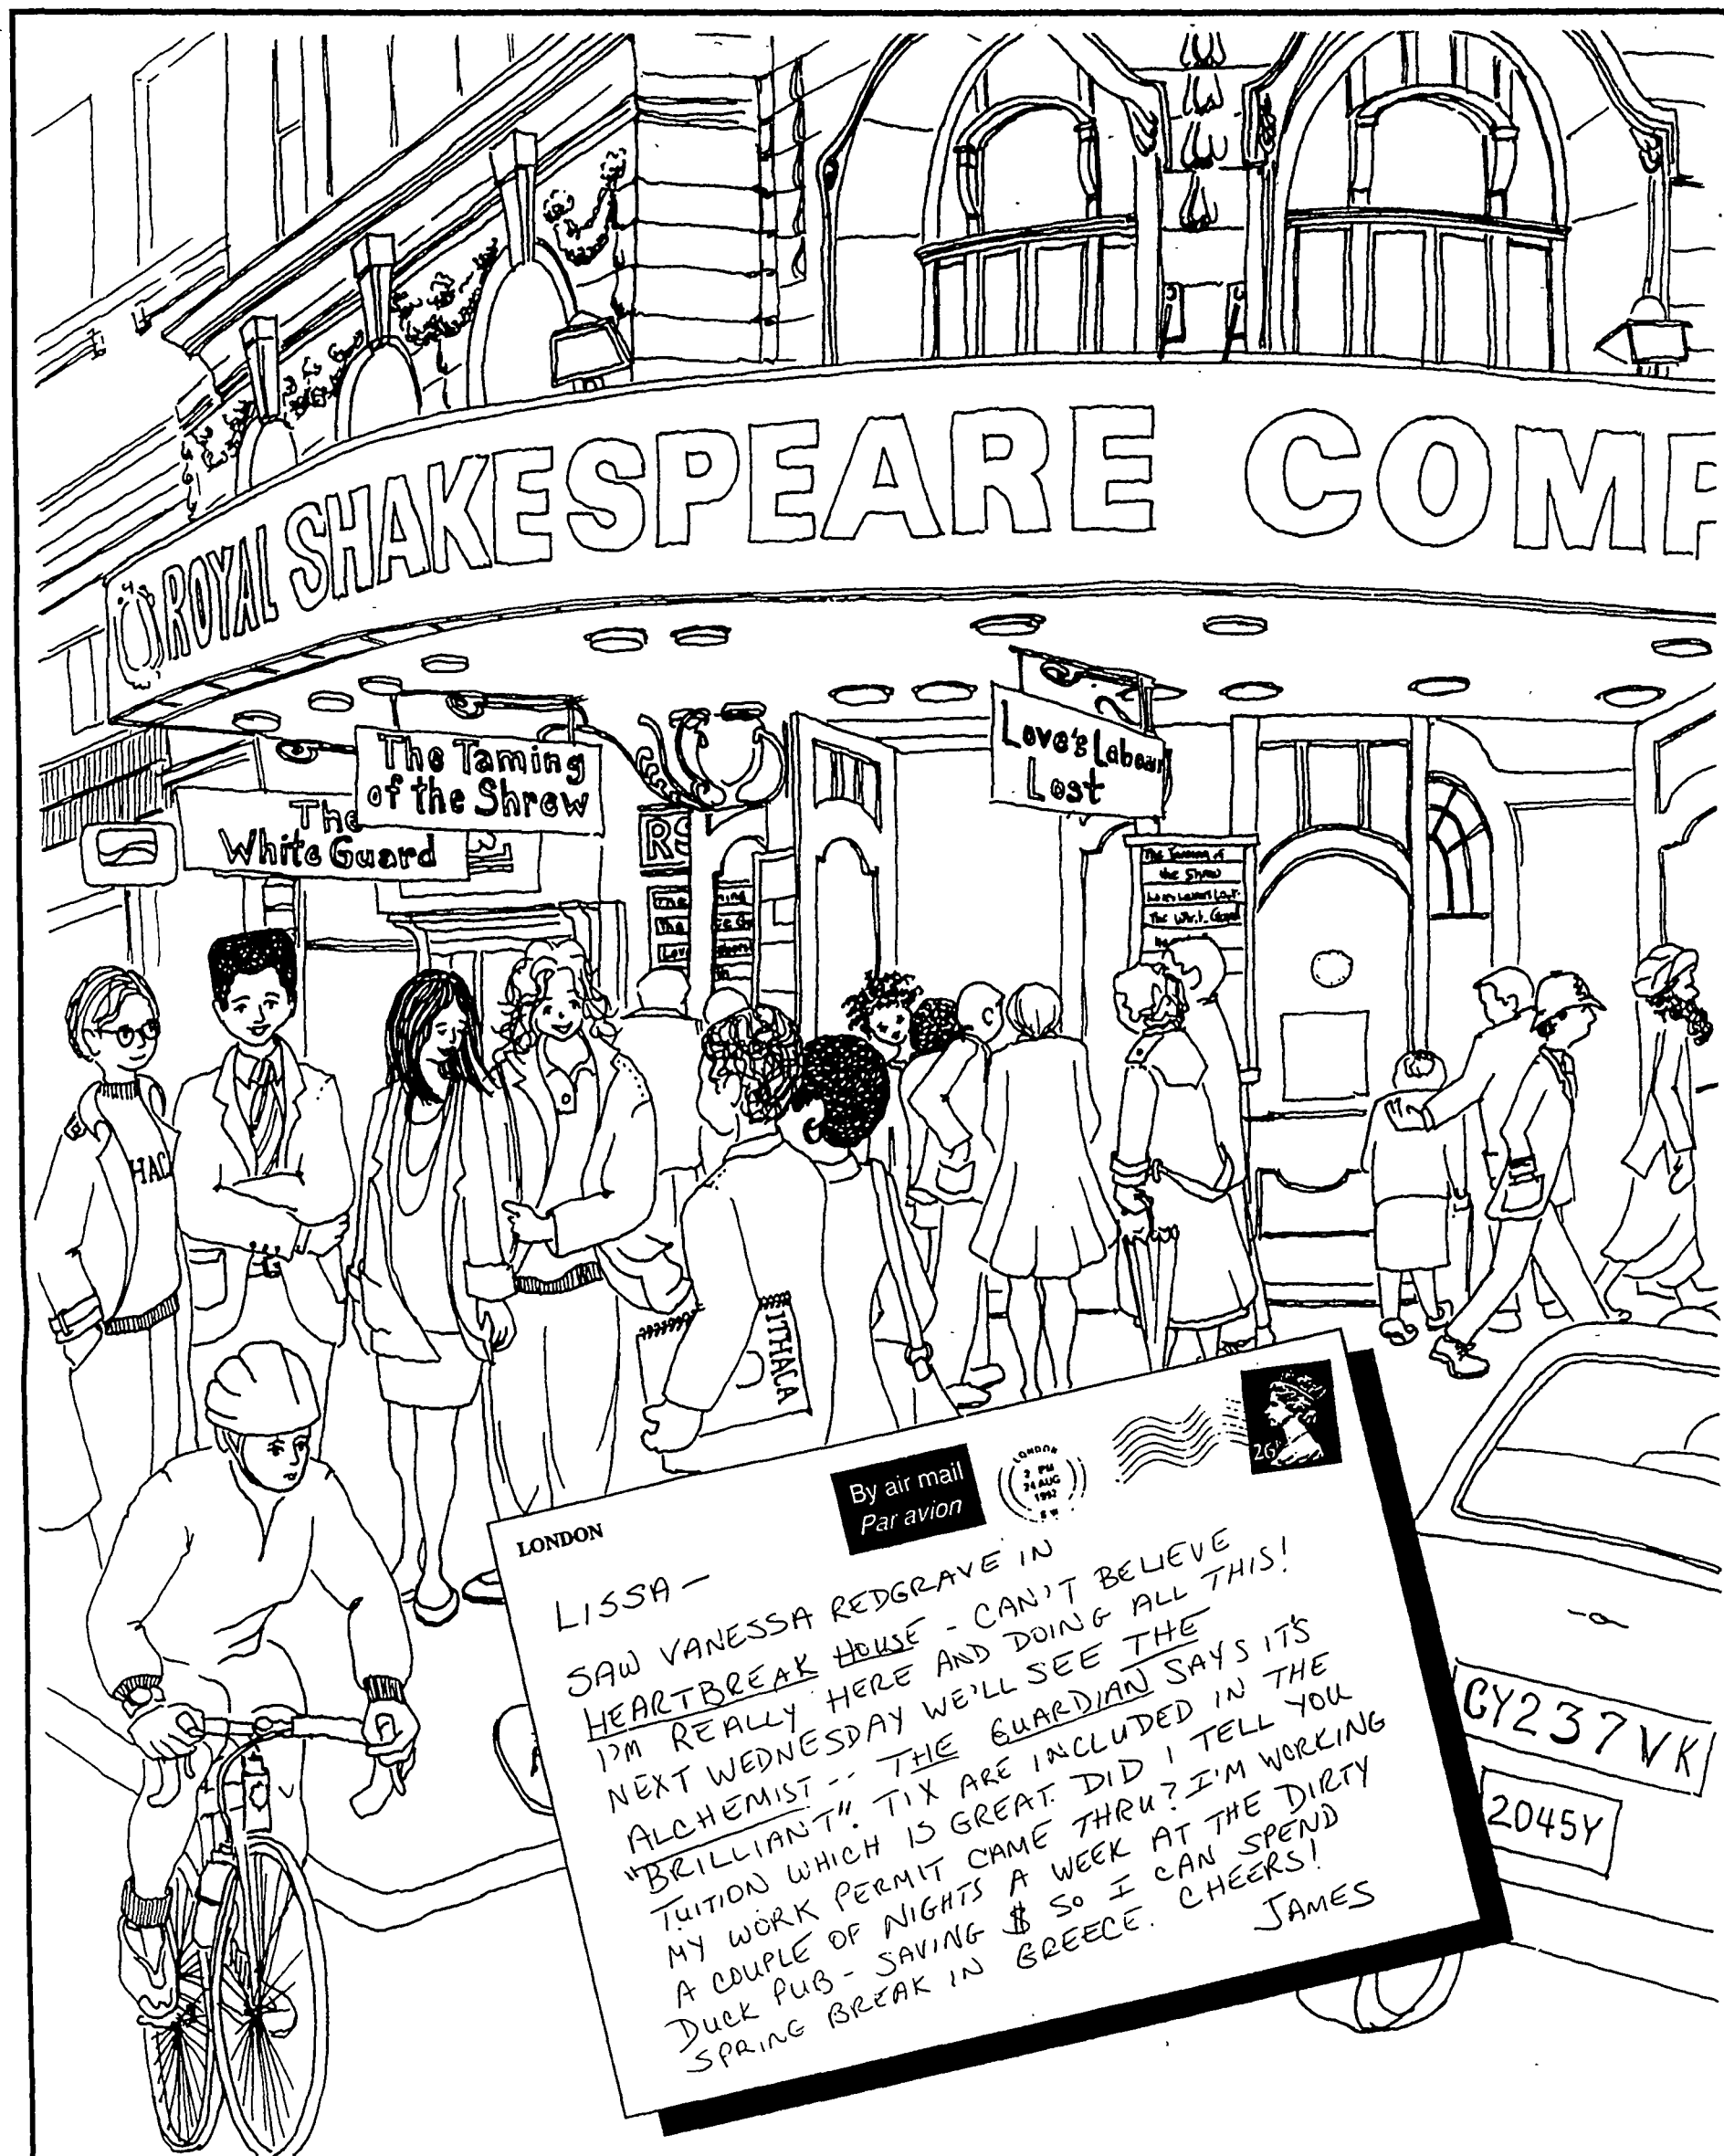 ROYAL SHAKESPEARE COMP
The Taming
of the Shrew
The
White Guard
Love's Labour
Lost
RS
The Taming of
the Shrew
HAC
ITHACA
By air mail
Par avion
LONDON
2 PM
24 AUG
1992
S W
26
LONDON
LISSA -
SAW VANESSA REDGRAVE IN
HEARTBREAK HOUSE - CAN'T BELIEVE
I'M REALLY HERE AND DOING ALL THIS!
NEXT WEDNESDAY WE'LL SEE THE
ALCHEMIST -- THE GUARDIAN SAYS IT'S
"BRILLIANT". TIX ARE INCLUDED IN THE
TUITION WHICH IS GREAT. DID I TELL YOU
MY WORK PERMIT CAME THRU? I'M WORKING
A COUPLE OF NIGHTS A WEEK AT THE DIRTY
DUCK PUB - SAVING $ SO I CAN SPEND
SPRING BREAK IN GREECE. CHEERS!
JAMES
CY237VK
2045Y